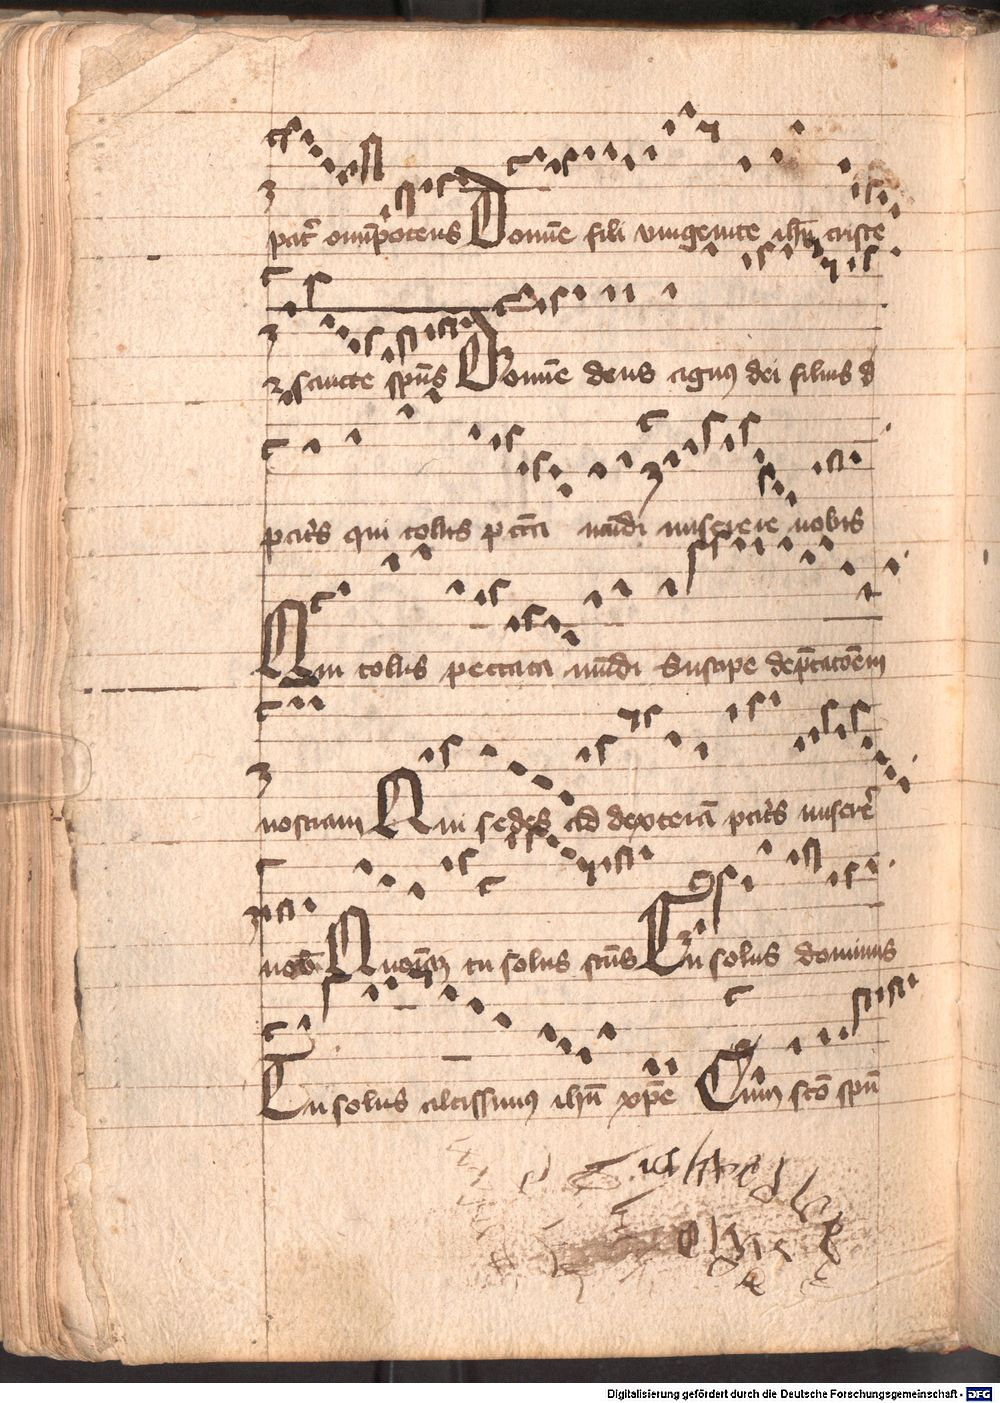 pat̄ omīpotens Domīe fili vnigenite ihū criste
sancte spūs Domīe deus agnus dei filius d
patris qui tollis pctā mūdi miserere nobis
Qui tollis peccata mūdi Suscipe dep̄catōem
nostram Qui sedes ad dexterā patris miserē
nob Quoniam tu solus scūs Tu solus dominus
Tu solus altissimus ihū xp̄e Cum scō spū
Digitalisierung gefördert durch die Deutsche Forschungsgemeinschaft - DFG